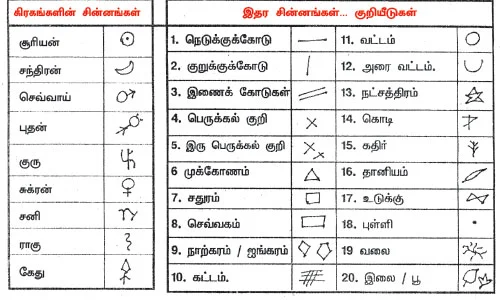 கிரகங்களின் சின்னங்கள்
சூரியன்
சந்திரன்
செவ்வாய்
புதன்
குரு
சுக்ரன்
சனி
ராகு
கேது
இதர சின்னங்கள்... குறியீடுகள்
1. நெடுக்குக்கோடு
2. குறுக்குக்கோடு
3. இணைக் கோடுகள்
4. பெருக்கல் குறி
5. இரு பெருக்கல் குறி
6 முக்கோணம்
7. சதுரம்
8. செவ்வகம்
9. நாற்கரம் / ஐங்கரம்
10. கட்டம்.
11. வட்டம்
12. அரை வட்டம்.
13. நட்சத்திரம்
14. கொடி
15. கதிர்
16. தானியம்
17. உடுக்கு
18. புள்ளி
19 வலை
20. இலை / பூ